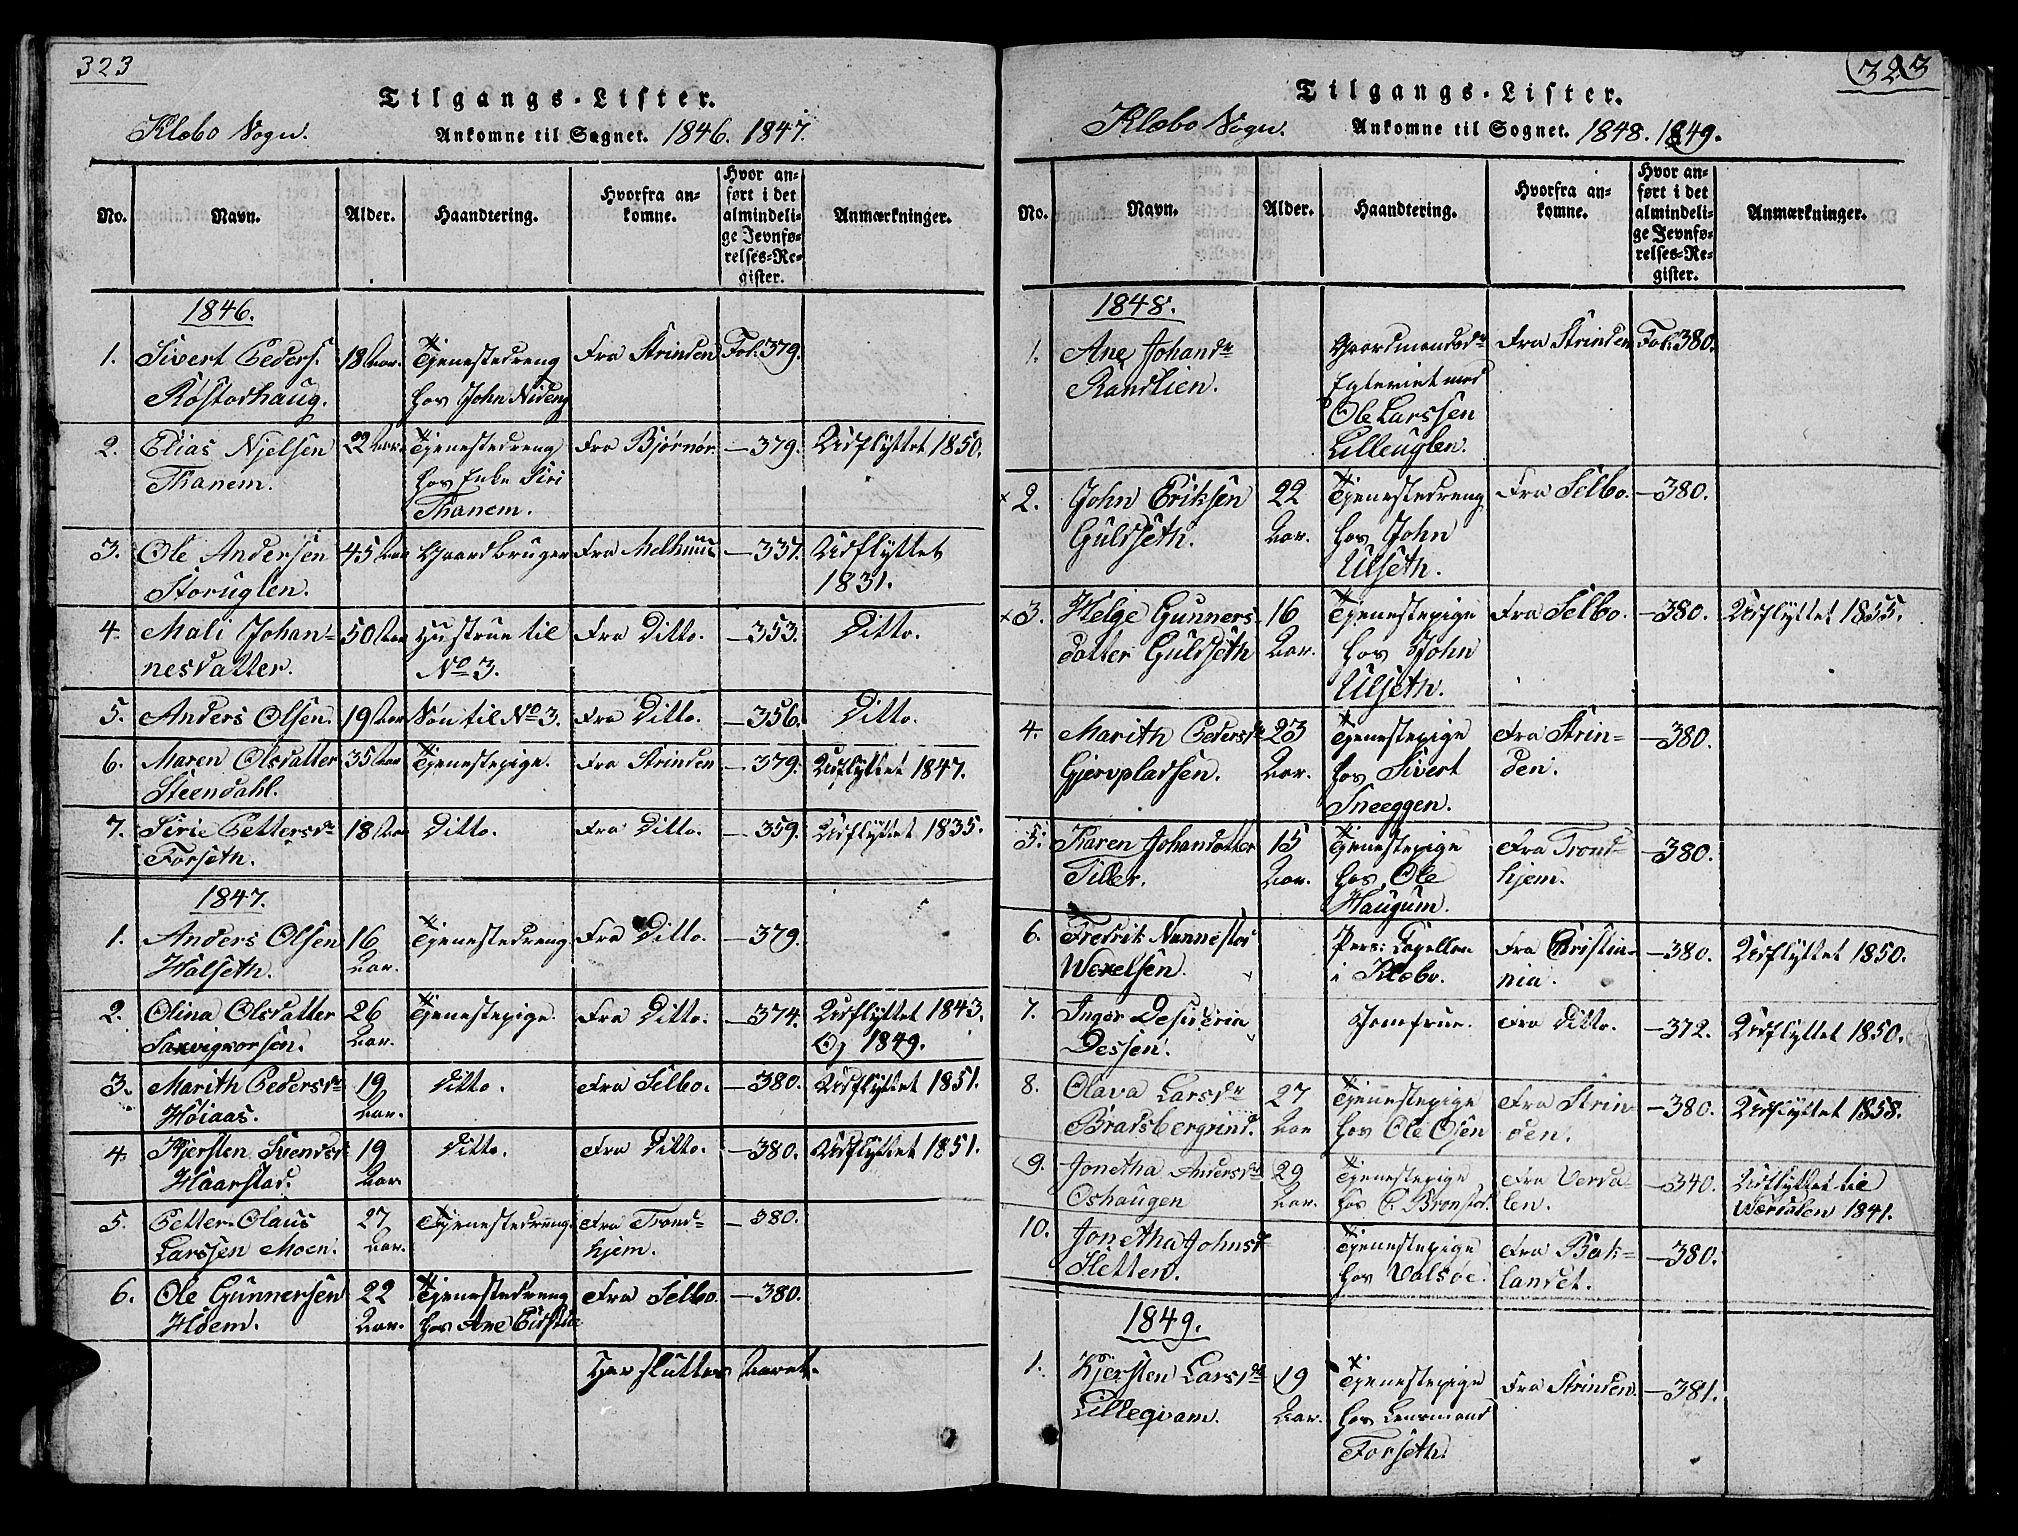 323
Tilgangs-Lister.
Klæbo Sogn.
Ankomne til Sognet. 1846. 1847.
No.
Navn.
Alder.
Haandtering.
Hvorfra an-
komne.
Hvor an-
ført i det
almindeli-
ge Jevnfø-
relses-Re-
gister.
Anmærkninger.
1846.
1. Sivert Peders. 18 Aar. Tjenestedreng Fra Strinden Fol. 379.
Røstadhaug. hos John Nideng
2. Elias Njelsen 22 Aar. Tjenestedreng Fra Bjørnør. —379. Udflyttet 1850.
Thanem. hos Enke Siri
Thanem.
3. Ole Andersen 45 Aar Gaardbruger Fra Melhuus —337. Udflyttet
Storuglen. 1831.
4. Mali Johan- 50 Aar Hustrue til Fra Ditto. —353. Ditto.
nesdatter. No 3.
5. Anders Olsen. 19 Aar Søn til No 3. Fra Ditto. —356. Ditto.
6. Maren Olsdatter 35 Aar Tjenestepige. Fra Strinden —379. Udflyttet 1847.
Steendahl.
7. Sirie Pettersdr 18 Aar Ditto. Fra Ditto. —359. Udflyttet 1835.
Forseth.
1847.
1. Anders Olsen 16 Tjenestedreng Fra Ditto. —379.
Halseth. Aar.
2. Olina Olsdatter 26 Tjenestepige. Fra Ditto. —374. Udflyttet 1843.
Aar. Og 1849.
3. Marith Pedersdr 19 Ditto. Fra Selbo. —380. Udflyttet 1851.
Høiaas. Aar.
4. Kjersten Svendsd 19 Ditto. Fra Ditto. —380. Udflyttet 1851.
Haarstad. Aar
5. Petter Olaus 27 Tjenestedreng. Fra Trond- —380.
Larssen Moen. Aar. hjem.
6. Ole Gunnersen 22 Tjenestedreng Fra Selbo —380.
Hoem. Aar. hos Ane
Her slutter Aaret.
323
Tilgangs-Lister.
Klæbo Sogn.
Ankomne til Sognet. 1848. 1849.
No.
Navn.
Alder.
Haandtering.
Hvorfra an-
komne.
Hvor an-
ført i det
almindeli-
ge Jevnfø-
relses-Re-
gister.
Anmærkninger.
1848.
1. Ane Johandr Gaardmandsdr Fra Strinden Fol. 380.
Randlien. Egteviet med
Ole Larssen
Lilleuglen.
x 2. John Eriksen 22 Tjenestedreng Fra Selbo. —380.
Guldseth. Aar. hos John
Ulseth.
x 3. Helge Gunners 16 Tjenestepige Fra Selbo. —380. Udflyttet 1855.
datter Guldseth Aar. hos John
Ulseth.
4. Marith Pedersdr 23 Tjenestepige Fra Strin- —380.
Gjervpladsen. Aar. hos Sivert den.
Sneeggen.
5. Karen Johandatter 15 Tjenestepige Fra Trond- —380.
Tiller. Aar. hos Ole hjem.
Haugum.
6. Fredrik Nannestad Pers: Capellan Fra Christia- —380. Udflyttet 1850.
Wexelsen. i Klæbo. nia.
7. Inger Desideria Jomfrue. Fra Ditto. —372. Udflyttet 1850.
Dessen.
8. Olava Larsdr 27 Tjenestepige Fra Strin —380. Udflyttet 1858.
Bradsbergrind. Aar hos Ole Osen den.
9. Jonetha Andersdr 29 Tjenestepige Fra Verda- —340. Udflyttet til
Oshaugen Aar. hos len. Værdalen 1841.
10. Jonetha Johnsd Tjenestepige Fra Bak- —380.
Sletten. hos Valsøe. landet.
1849.
1. Kjersten Larsdr 19 Tjenestepige Fra Strinden. —381.
Lilleqvam. Aar. hos Lensmand
Forseth.